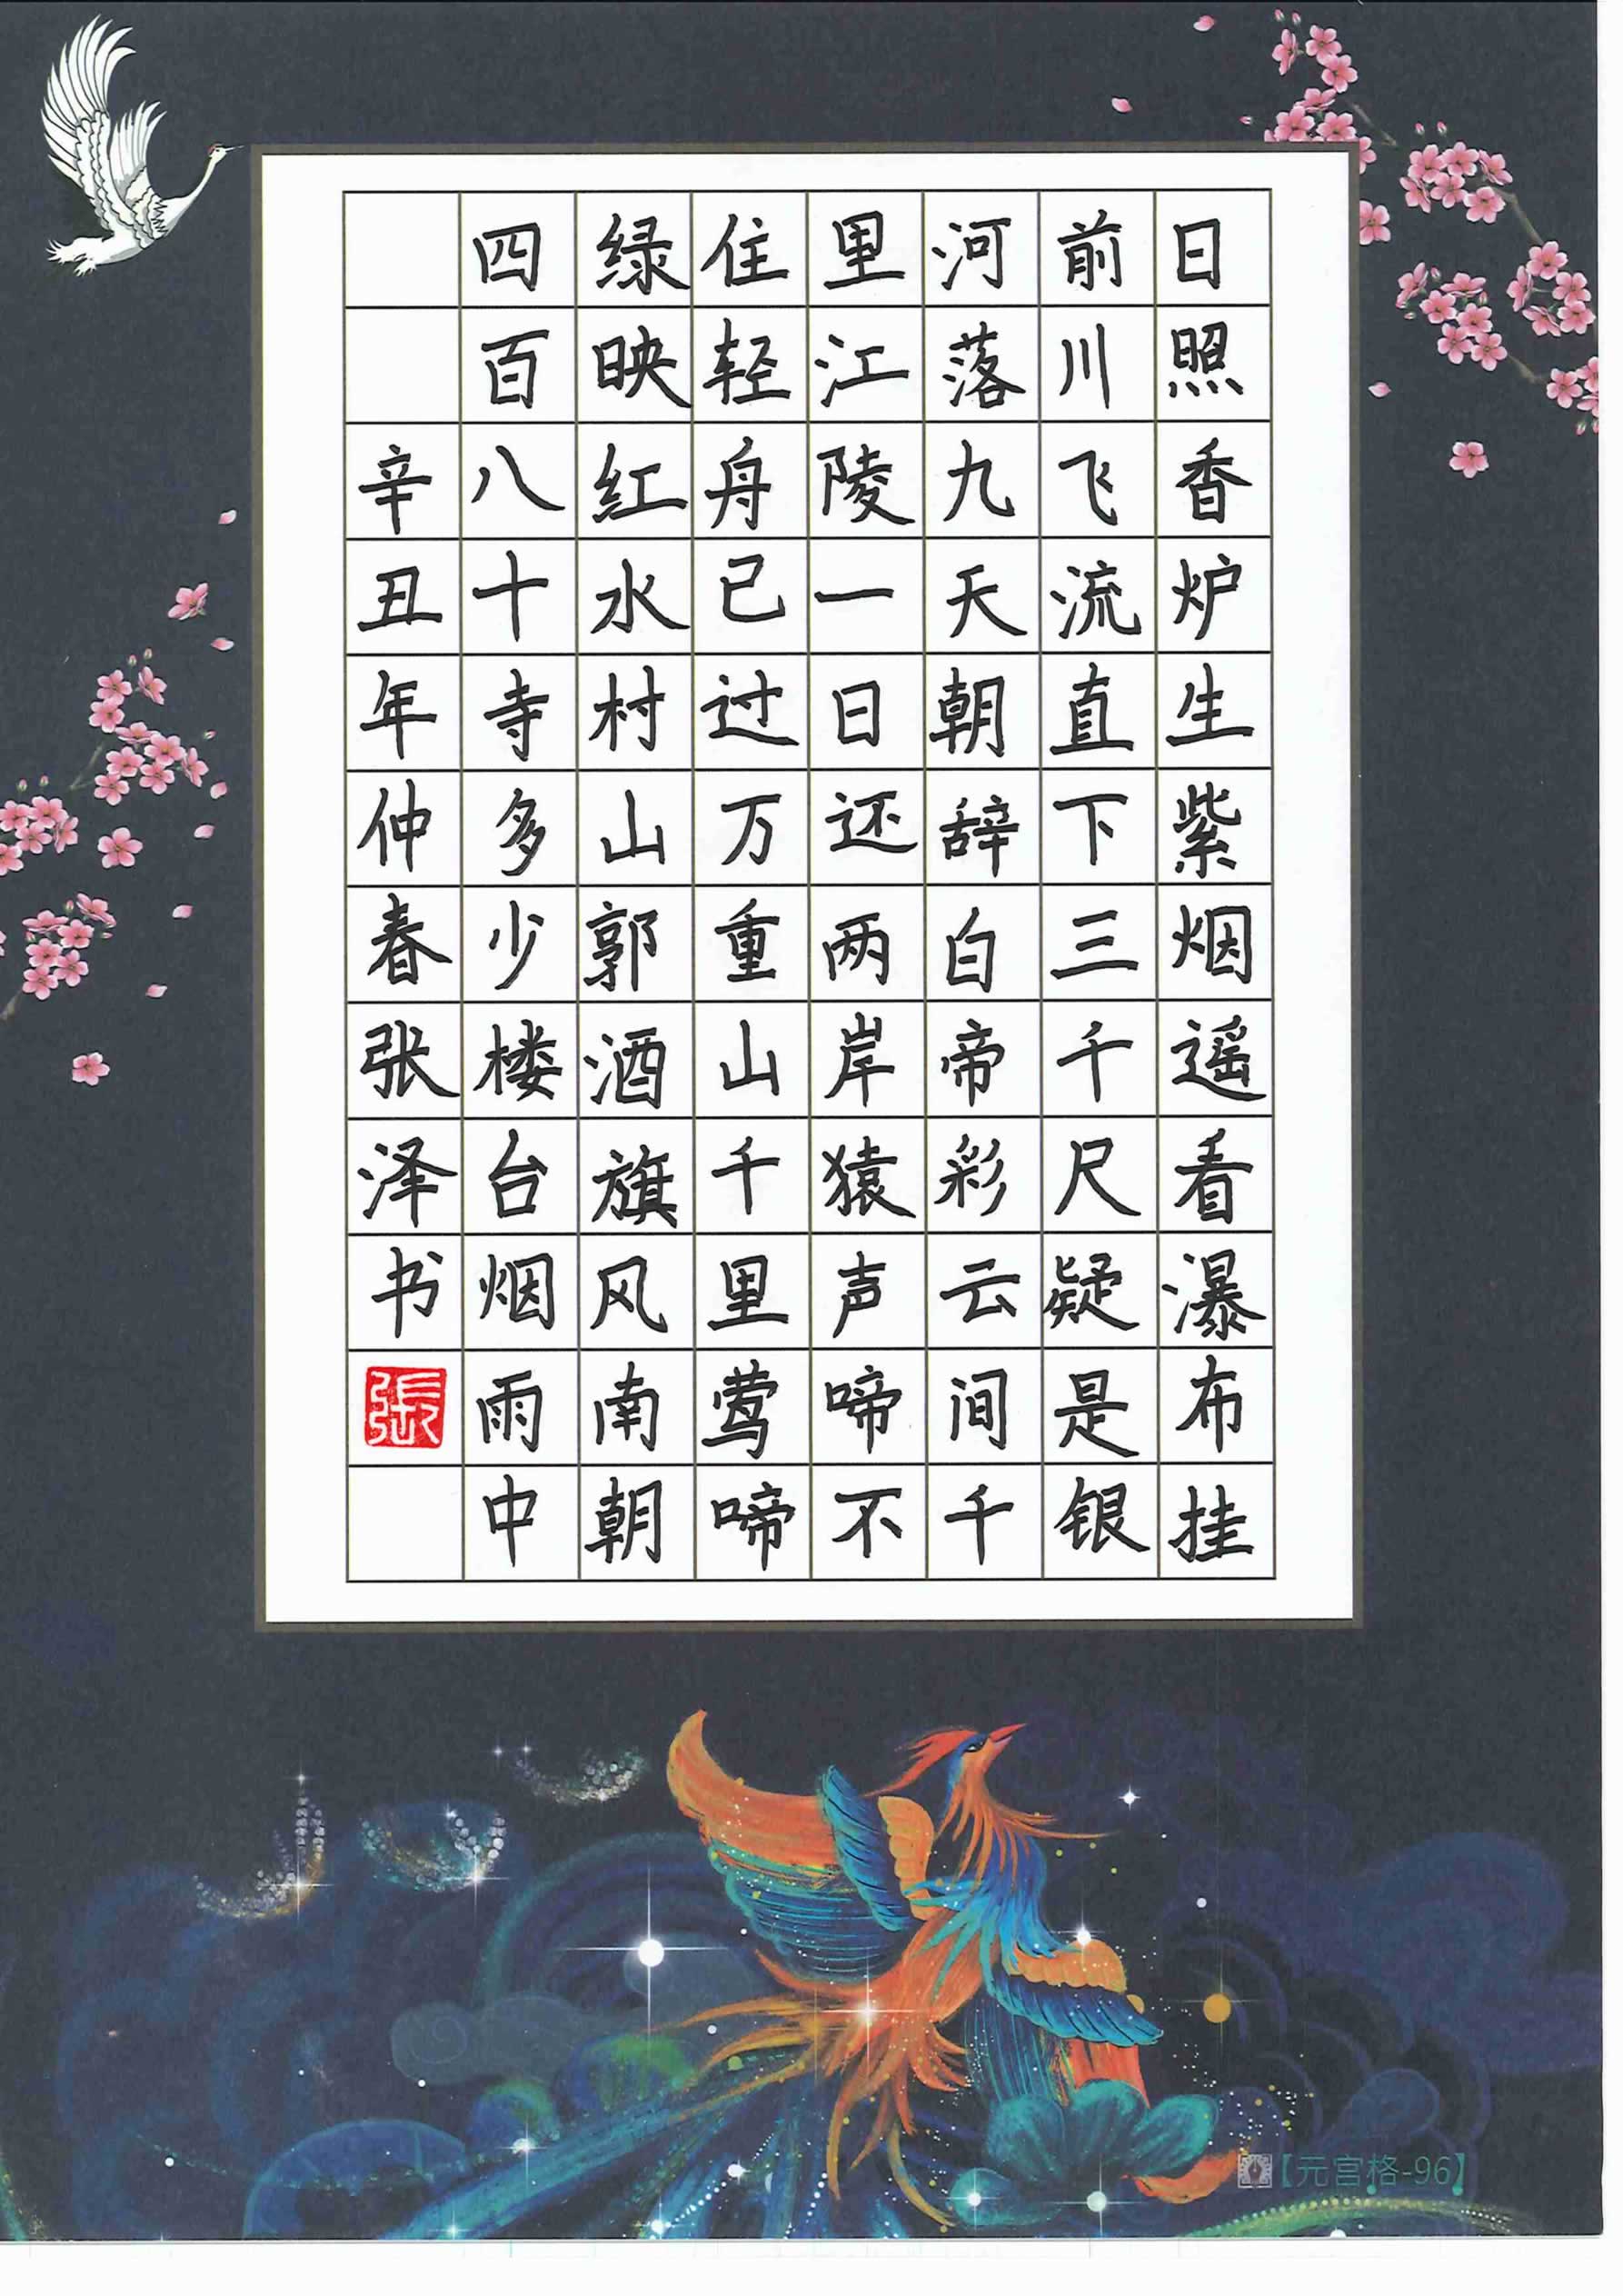 日照香炉生紫烟遥看瀑布挂
前川飞流直下三千尺疑是银
河落九天朝辞白帝彩云间千
里江陵一日还两岸猿声啼不
住轻舟已过万重山千里莺啼
绿映红水村山郭酒旗风南朝
四百八十寺多少楼台烟雨中
辛丑年仲春张泽书
張
【元宫格-96】